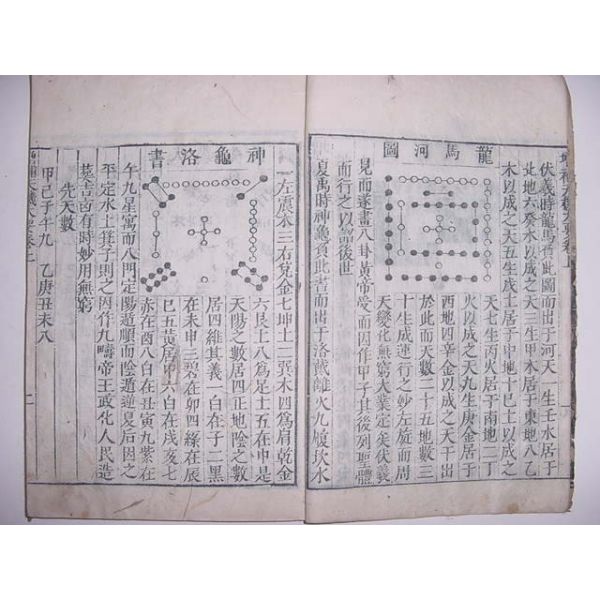 龍馬河圖
伏羲時龍馬負此圖而出于河天一生壬水居于
北地六癸水以成之天三生甲木居于東地八乙
木以成之天五生戊土居于中地十己土以成之
天七生丙火居于南地二丁
火以成之天九生庚金居于
西地四辛金以成之天干出
於此而天數二十五地數三
十生成運行之妙左旋而周
天變化無窮大業定矣伏羲
見而遂畫八卦黃帝受而因作甲子其後列聖體
而行之以詔後世
夏禹時神龜負此書而出于洛戴離火九履坎水
神龜洛書
一左震木三右兌金七坤土二巽木四爲肩乾金
六艮土八爲足土五在中是
天陽之數居四正地陰之數
居四維其義一白在子二黑
在未申三碧在卯四綠在辰
巳五黄居中六白在戌亥七
赤在酉八白在丑寅九紫在
午九星寓而八門定陽遁順而陰遁逆夏后因之
平定水土箕子則之因作九疇帝王政化人民造
葬吉凶有時妙用無窮
先天數
甲己子午九 乙庚丑未八